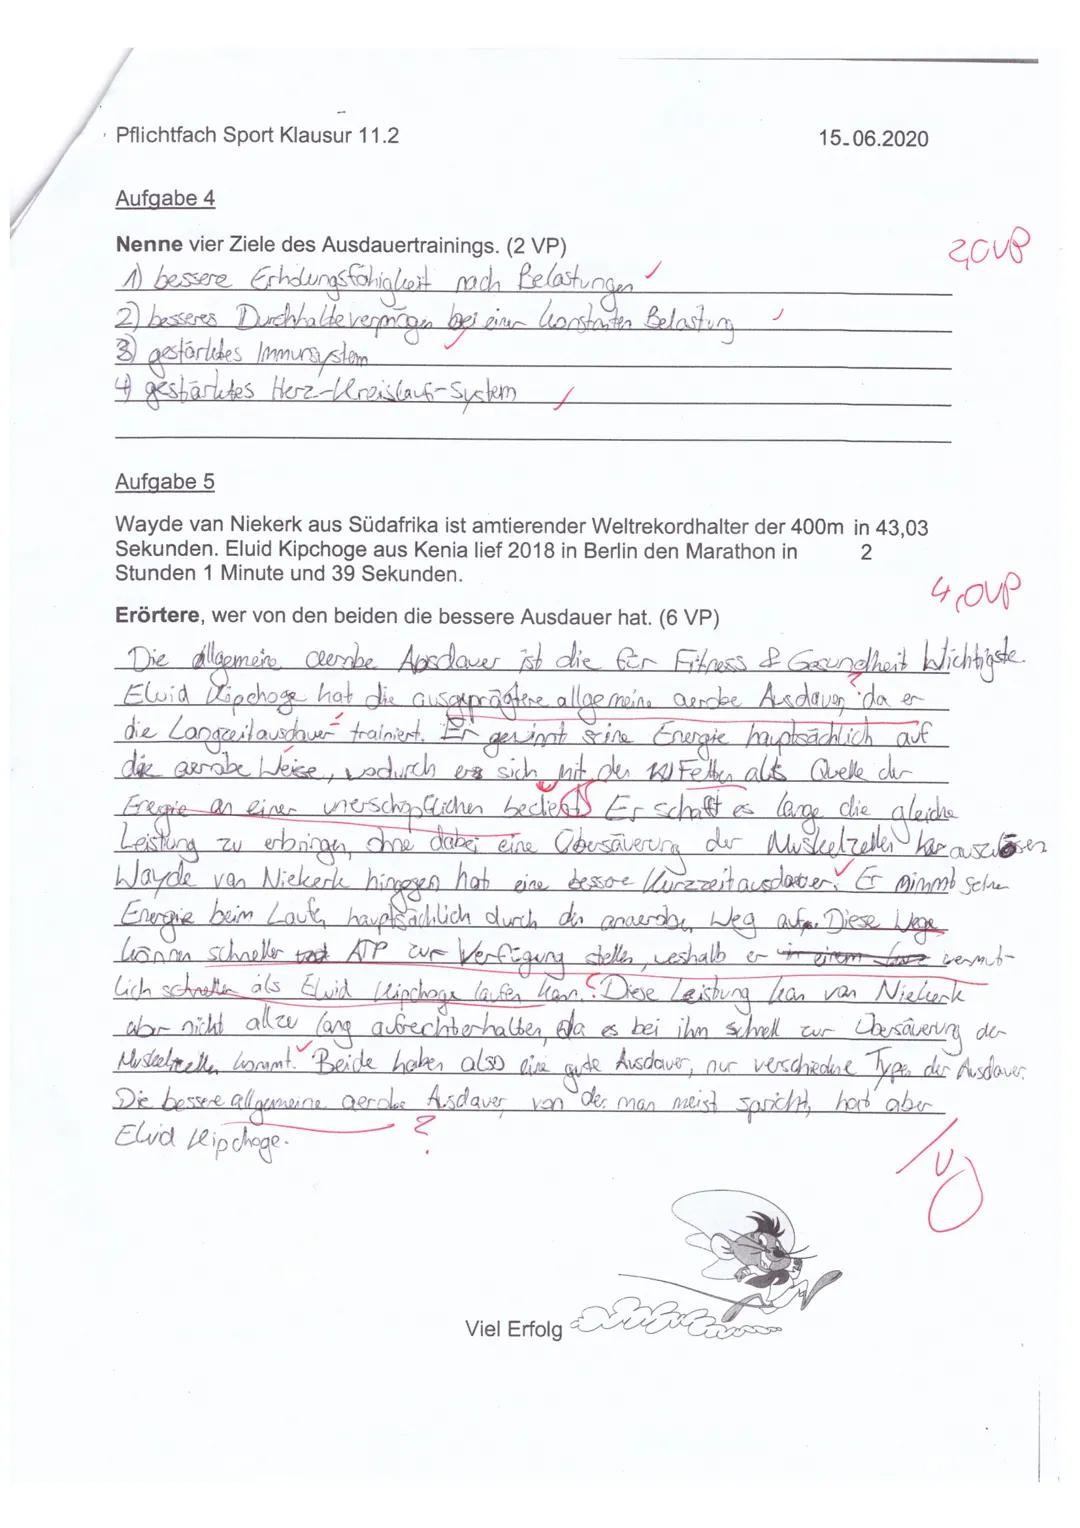 Pflichtfach Sport Klausur 11.2
15.06.2020
Aufgabe 4
Nenne vier Ziele des Ausdauertrainings. (2 VP)
2,0VP
1) bessere Erholungsfähigkeit nach Belastungen
2) besseres Durchhaltevermögen bei einer konstanten Belastung
3) gestärktes Immunsystem
4) gestärktes Herz-Kreislauf-System
Aufgabe 5
Wayde van Niekerk aus Südafrika ist amtierender Weltrekordhalter der 400m in 43,03
Sekunden. Eluid Kipchoge aus Kenia lief 2018 in Berlin den Marathon in 2
Stunden 1 Minute und 39 Sekunden.
4,0VP
Erörtere, wer von den beiden die bessere Ausdauer hat. (6 VP)
Die allgemeine aerobe Ausdauer ist die für Fitness & Gesundheit Wichtigste.
Eluid Kipchoge hat die ausgeprägtere allgemeine aerobe Ausdauer, da er
die Langzeitausdauer trainiert. Er gewinnt seine Energie hauptsächlich auf
die aerobe Weise, wodurch er sich mit den Fetten als Quelle der
Energie an einer unerschöpflichen bedient. Er schafft es lange die gleiche
Leistung zu erbringen, ohne dabei eine Übersäuerung der Muskelzellen auszulösen
Wayde van Niekerk hingegen hat eine bessere Kurzzeitausdauer. Er nimmt seine
Energie beim Laufen hauptsächlich durch den anaeroben Weg auf. Diese Wege
können schneller ATP zur Verfügung stellen, weshalb er vermut-
lich schneller als Eluid Kipchoge laufen kann. Diese Leistung kan van Niekerk
aber nicht allzu lang aufrechterhalten, da es bei ihm schnell zur Übersäuerung der
Muskelzellen kommt. Beide haben also eine gute Ausdauer, nur verschiedene Typen der Ausdauer.
Die bessere allgemeine aerobe Ausdauer, von der man meist spricht, hat aber
Eluid Kipchoge.
?
Viel Erfolg